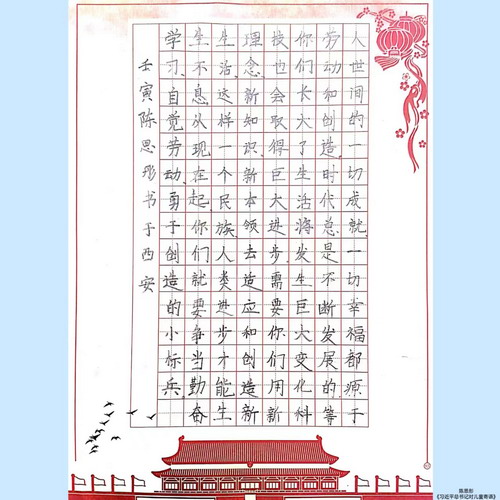 人世间的一切成就,一切幸福都源于
劳动和创造.时代总是不断发展的,等
你们长大了,生活将发生巨大变化,科
技也会取得巨大进步,需要你们用新
理念、新知识、新本领去适应和创造新
生活,这样一个民族、人类进步才能生
生不息.从现在起,你们就要争当勤奋
学习、自觉劳动、勇于创造的小标兵.
壬寅陈思彤书于西安
陈思彤
《习近平总书记对儿童寄语》